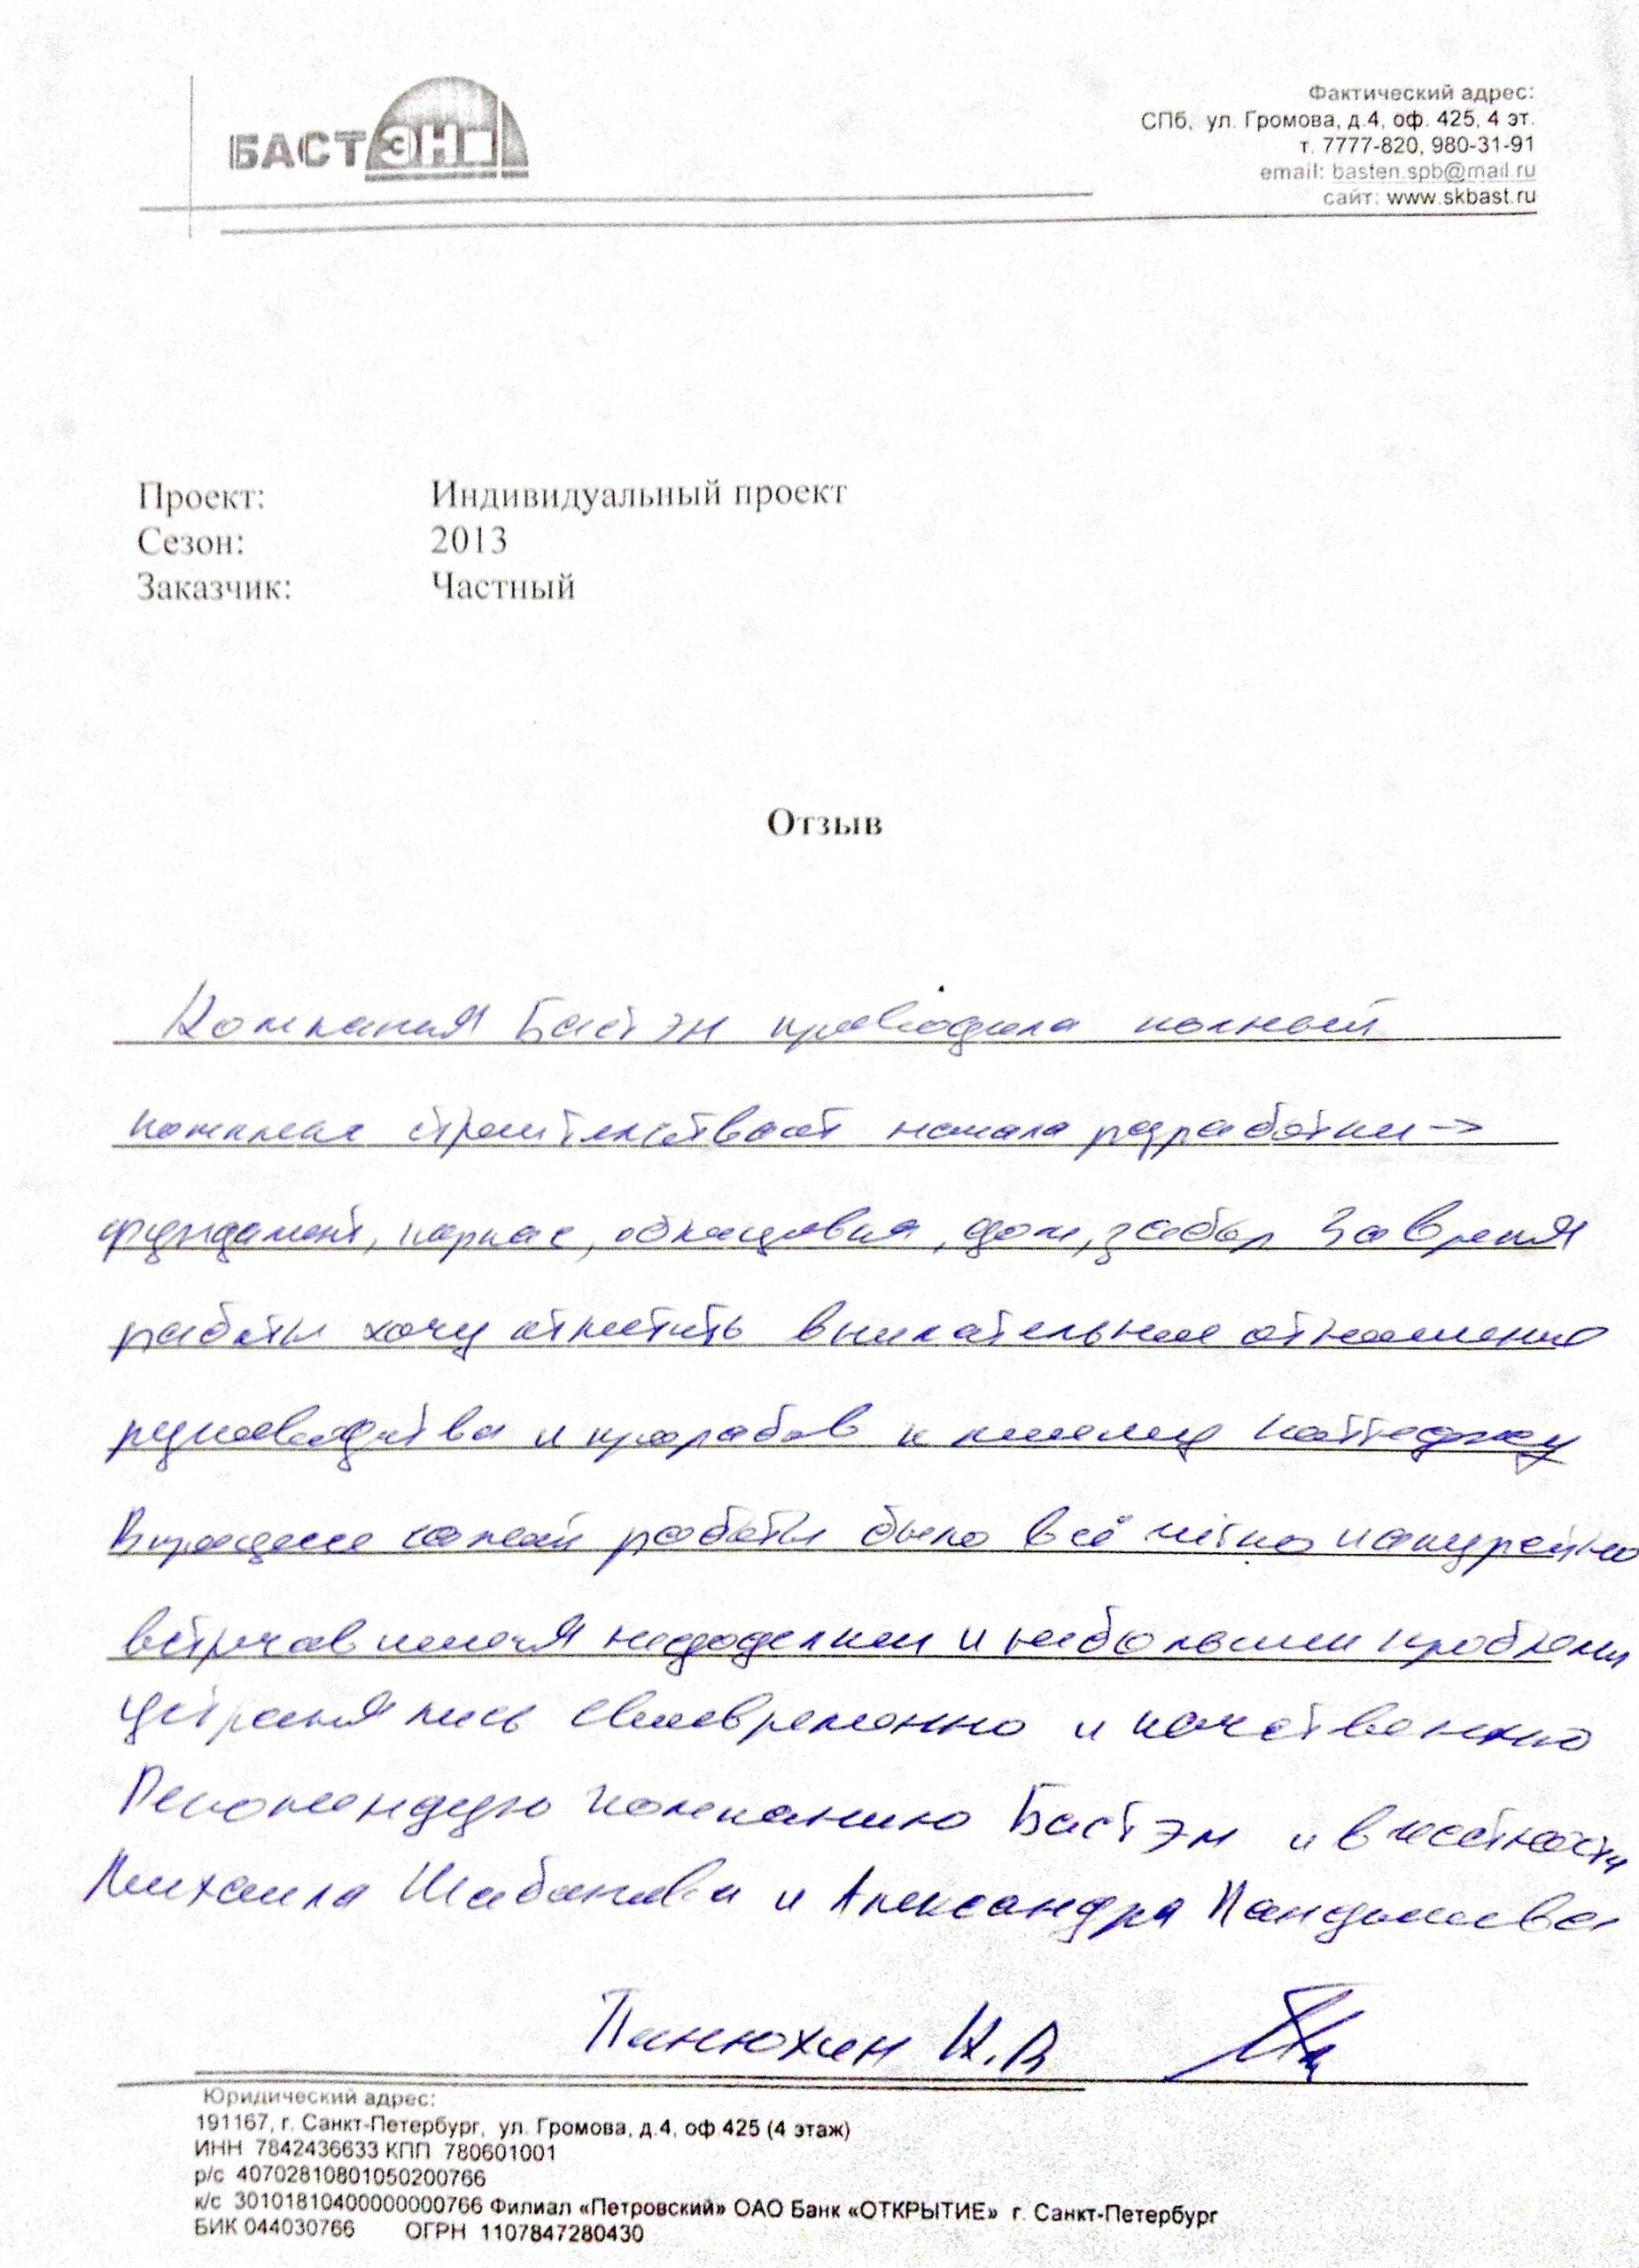 БАСТЭН
Фактический адрес:
СПб, ул. Громова, д.4, оф. 425, 4 эт.
т. 7777-820, 980-31-91
email: basten.spb@mail.ru
сайт: www.skbast.ru
Проект: Индивидуальный проект
Сезон: 2013
Заказчик: Частный
Отзыв
Компания Бастэн проводила полный
комплекс строительства от начала разработки →
фундамент, каркас, облицовка, дом, забор За время
работы хочу отметить внимательное отношение
руководства и прорабов к моему коттеджу
В процессе самой работы было всё чётко и аккуратно
встречавшиеся недоделки и небольшие проблемы
устранялись своевременно и качественно
Рекомендую компанию Бастэн и в частности
Михаила Шабанова и Александра
Панюхин К.В
Юридический адрес:
191167, г. Санкт-Петербург, ул. Громова, д.4, оф.425 (4 этаж)
ИНН 7842436633 КПП 780601001
р/с 40702810801050200766
к/с 30101810400000000766 Филиал «Петровский» ОАО Банк «ОТКРЫТИЕ» г. Санкт-Петербург
БИК 044030766 ОГРН 1107847280430